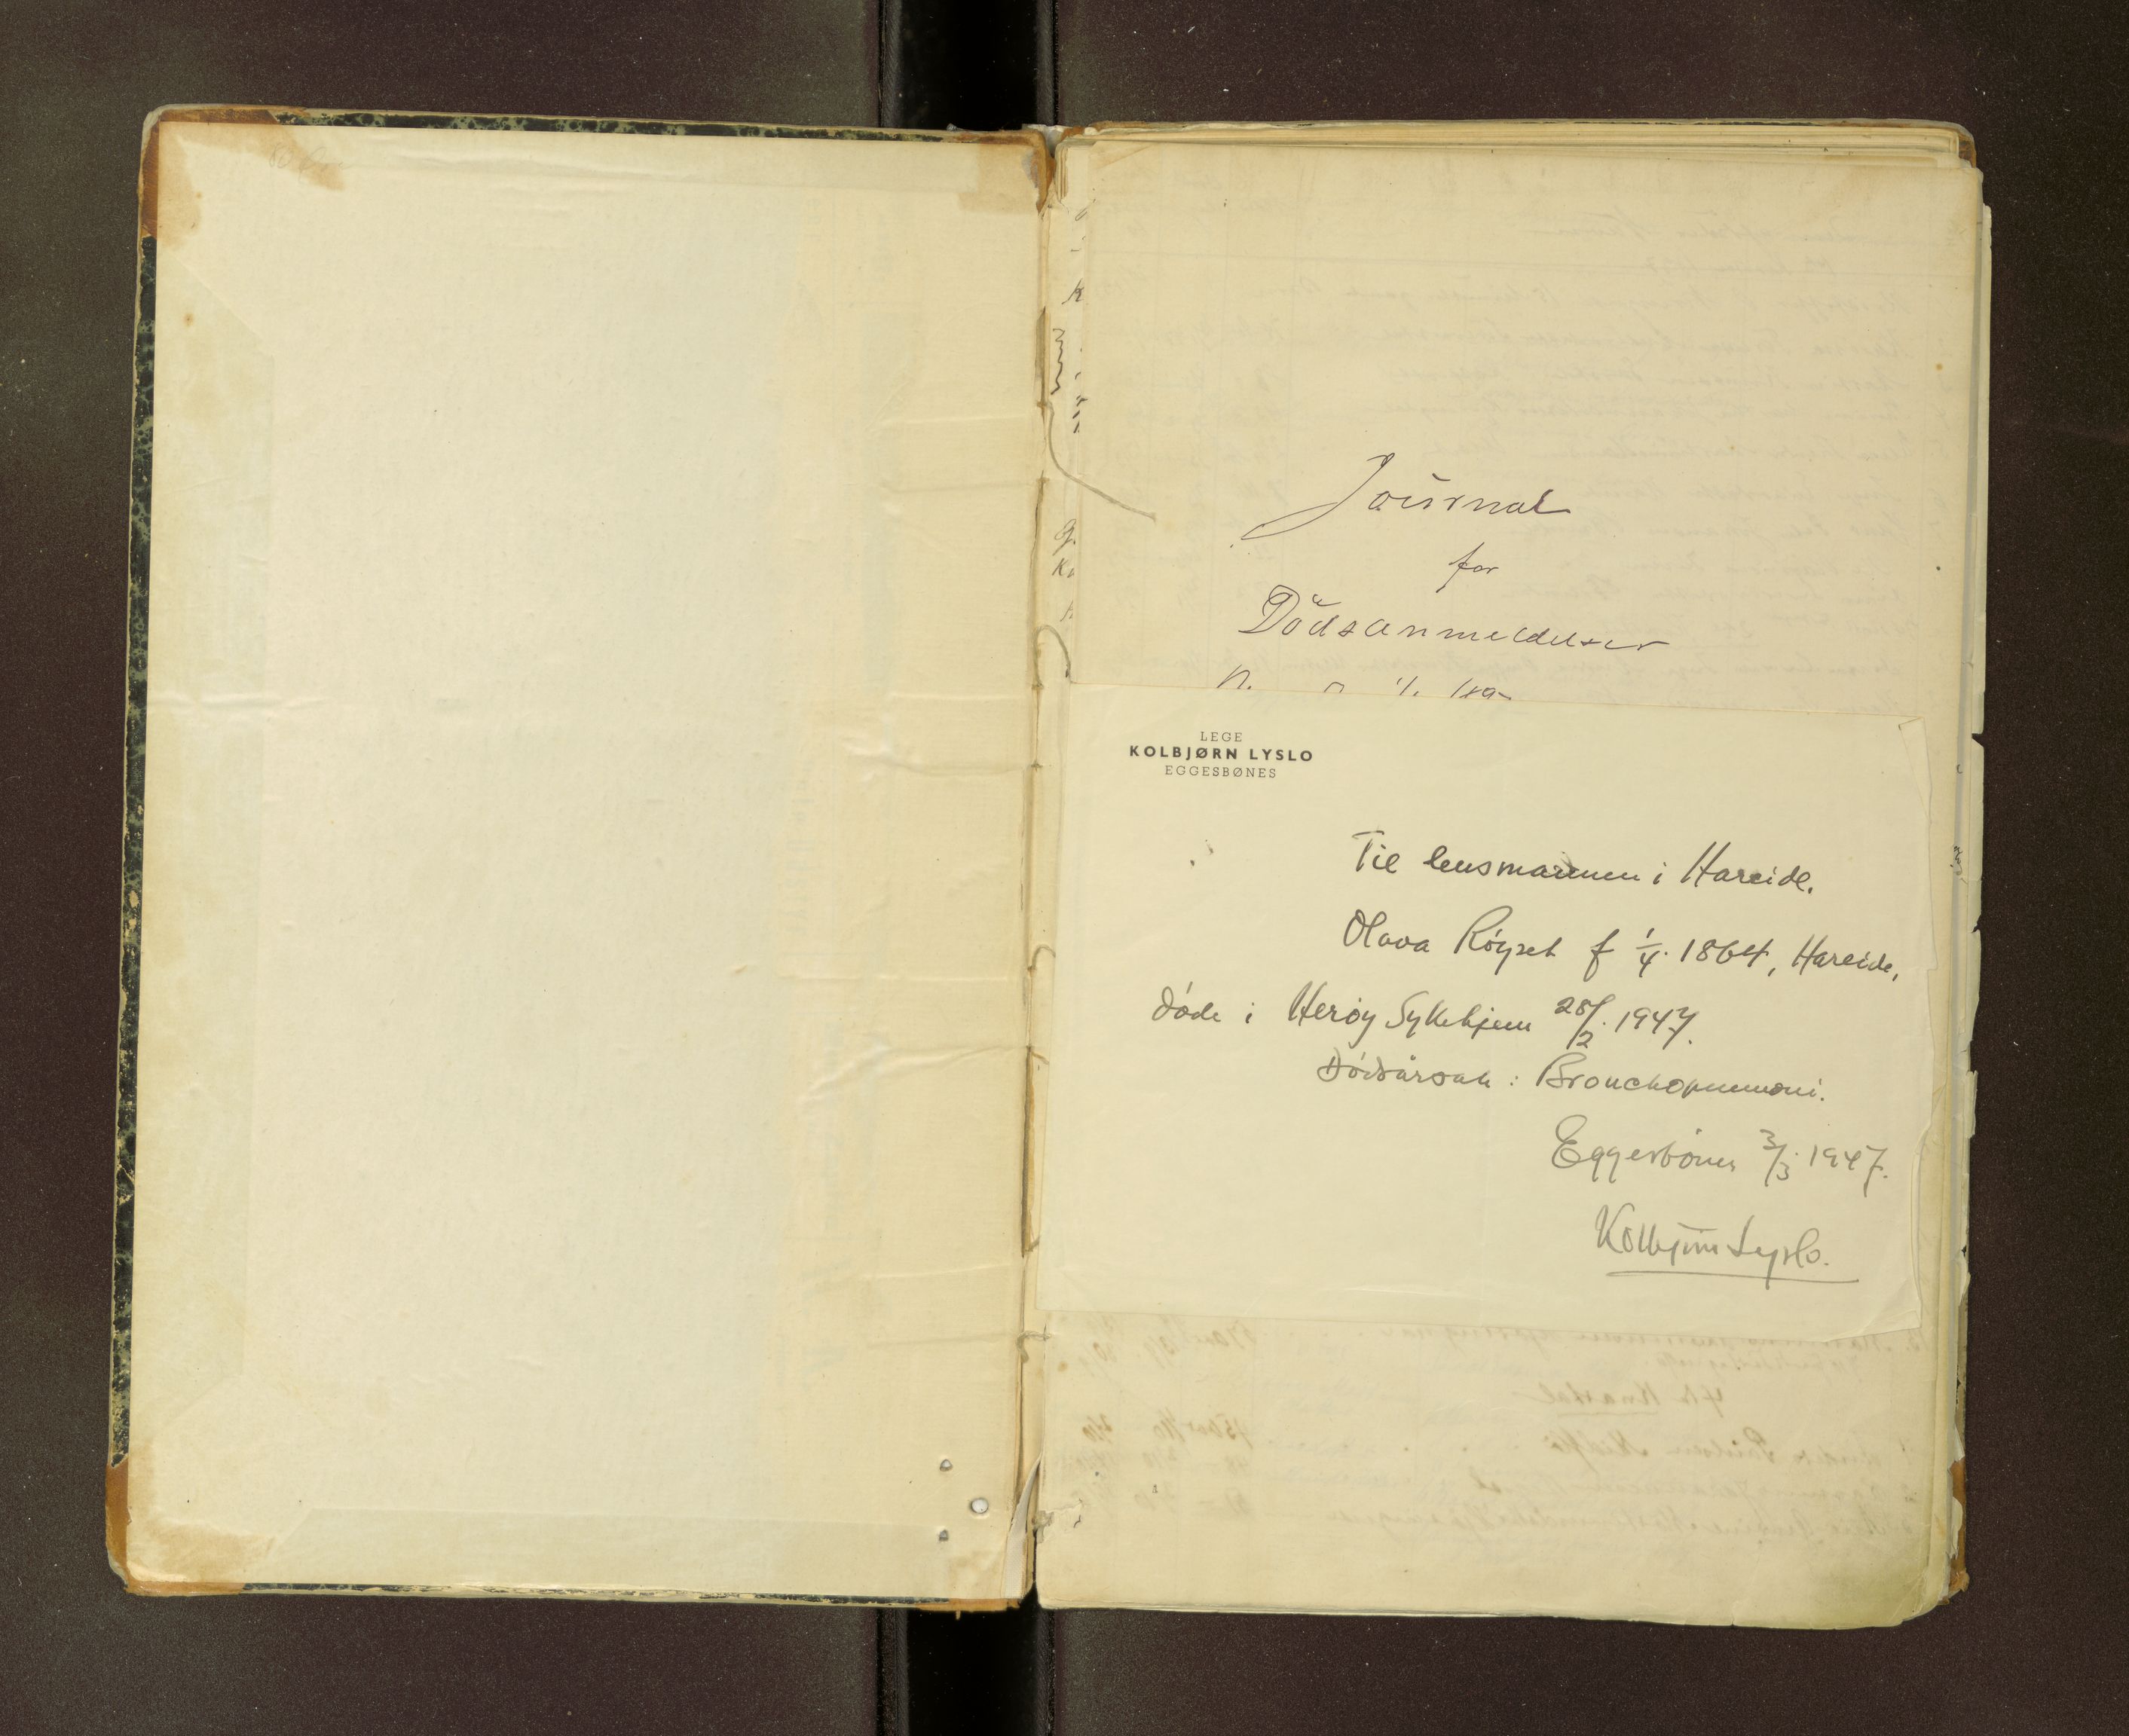 Journal
for
Dödsanmeldelser
LEGE
KOLBJØRN LYSLO
EGGESBØNES
Til lensmannen i Hareide.
Olava Röyset f 1/4. 1864, Hareide,
døde i Herøy Sykehjem 28/2. 1947.
Dødsårsak: Bronchopneumoni.
Eggesbønes 3/3. 1947.
Kolbjørn Lyslo.